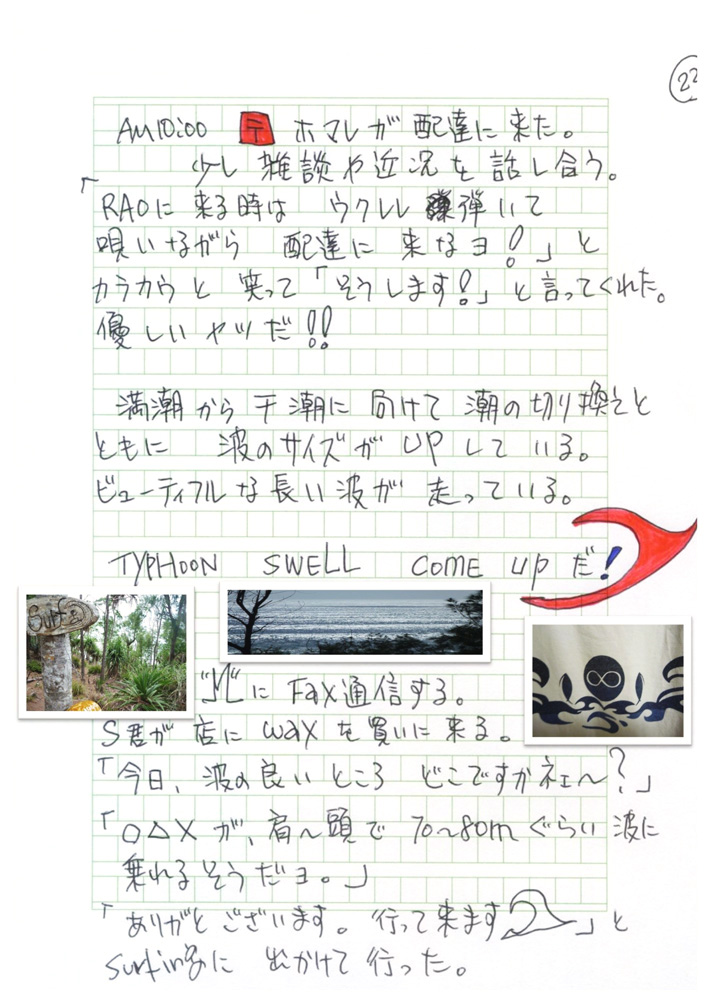 22
AM10:00 〒 ホマレが 配達に 来た。
少し 雑談や近況を 話し合う。
「RAOに 来る時は ウクレレ 弾いて
唄いながら 配達に 来なヨ!」と
カラカウと 笑って「そうします!」と言ってくれた。
優しいヤツだ!!
満潮から干潮に向けて 潮の切り換えと
ともに 波のサイズが UPして いる。
ビューティフルな長い波が 走っている。
TYPHOON SWELL COME UPだ!
SURF
"M"に Fax通信する。
S君が 店に waxを買いに来る。
「今日、波の良いところ どこですかネェ〜?」
「○△×が、肩〜頭で 70〜80mぐらい 波に
乗れるそうだヨ。」
「ありがとございます。行って来ます」と
surfingに 出かけて行った。